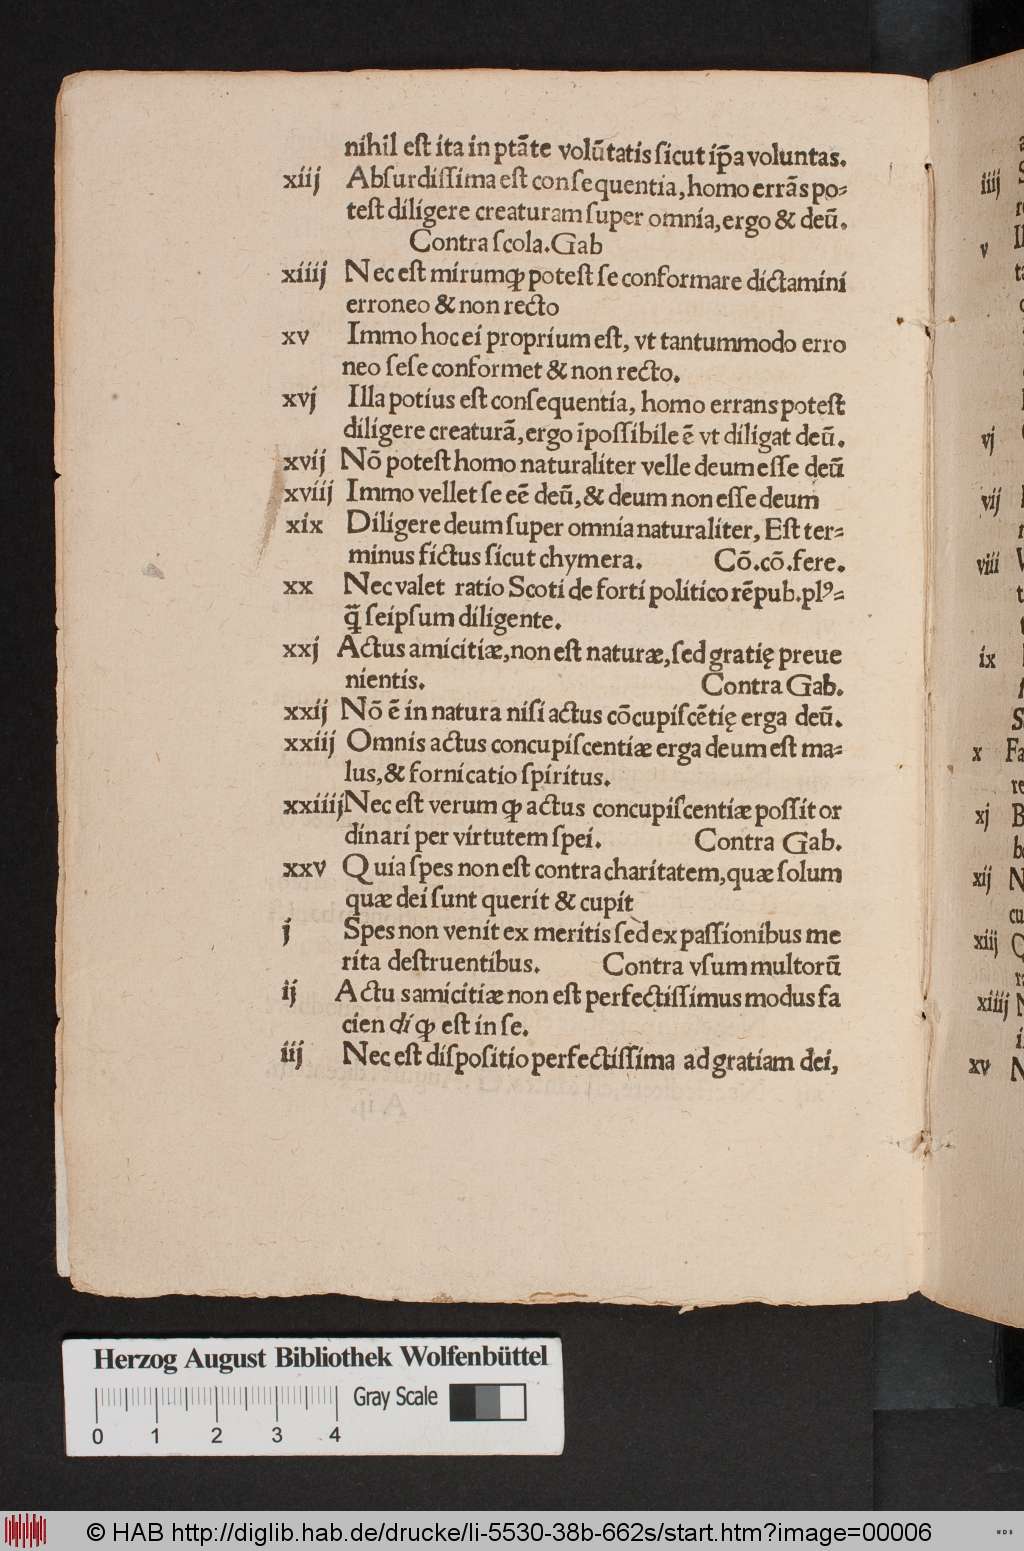 nihil eſt ita in ptāte volūtatis ſicut ip̄a voluntas.
xiij Abſurdiſſima eſt conſequentia, homo errās po⸗
teſt diligere creaturam ſuper omnia, ergo & deū.
Contra ſcola. Gab
xiiij Nec eſt mirum ꝙ poteſt ſe conformare dictamini
erroneo & non recto
xv Immo hoc ei proprium eſt, vt tantummodo erro
neo ſeſe conformet & non recto.
xvj Illa potius eſt conſequentia, homo errans poteſt
diligere creaturā, ergo īpoſſibile ē vt diligat deū.
xvij Nō poteſt homo naturaliter velle deum eſſe deū
xviij Immo vellet ſe eē deū, & deum non eſſe deum
xix Diligere deum ſuper omnia naturaliter, Eſt ter⸗
minus fictus ſicut chymera. Cō. cō. fere.
xx Nec valet ratio Scoti de forti politico rēpub. plꝰ⸗
q̄ ſeipſum diligente.
xxj Actus amicitiæ, non eſt naturæ, ſed gratię preue
nientis. Contra Gab.
xxij Nō ē in natura niſi actus cōcupiſcētię erga deū.
xxiij Omnis actus concupiſcentiæ erga deum eſt ma⸗
lus, & fornicatio ſpiritus.
xxiiij Nec eſt verum ꝙ actus concupiſcentiæ poſſit or
dinari per virtutem ſpei. Contra Gab.
xxv Quia ſpes non eſt contra charitatem, quæ ſolum
quæ dei ſunt querit & cupit
j Spes non venit ex meritis ſed ex paſſionibus me
rita deſtruentibus. Contra vſum multorū
ij Actu samicitiæ non eſt perfectiſſimus modus fa
cien di ꝙ eſt in ſe.
iij Nec eſt diſpoſitio perfectiſſima ad gratiam dei,
iiij
v
vj
vij
viii
ix
x Fa
xj B
xij N
cu
xiij Q
xiiij N
xv N
Herzog August Bibliothek Wolfenbüttel
Gray Scale
0 1 2 3 4
© HAB http://diglib.hab.de/drucke/li-5530-38b-662s/start.htm?image=00006